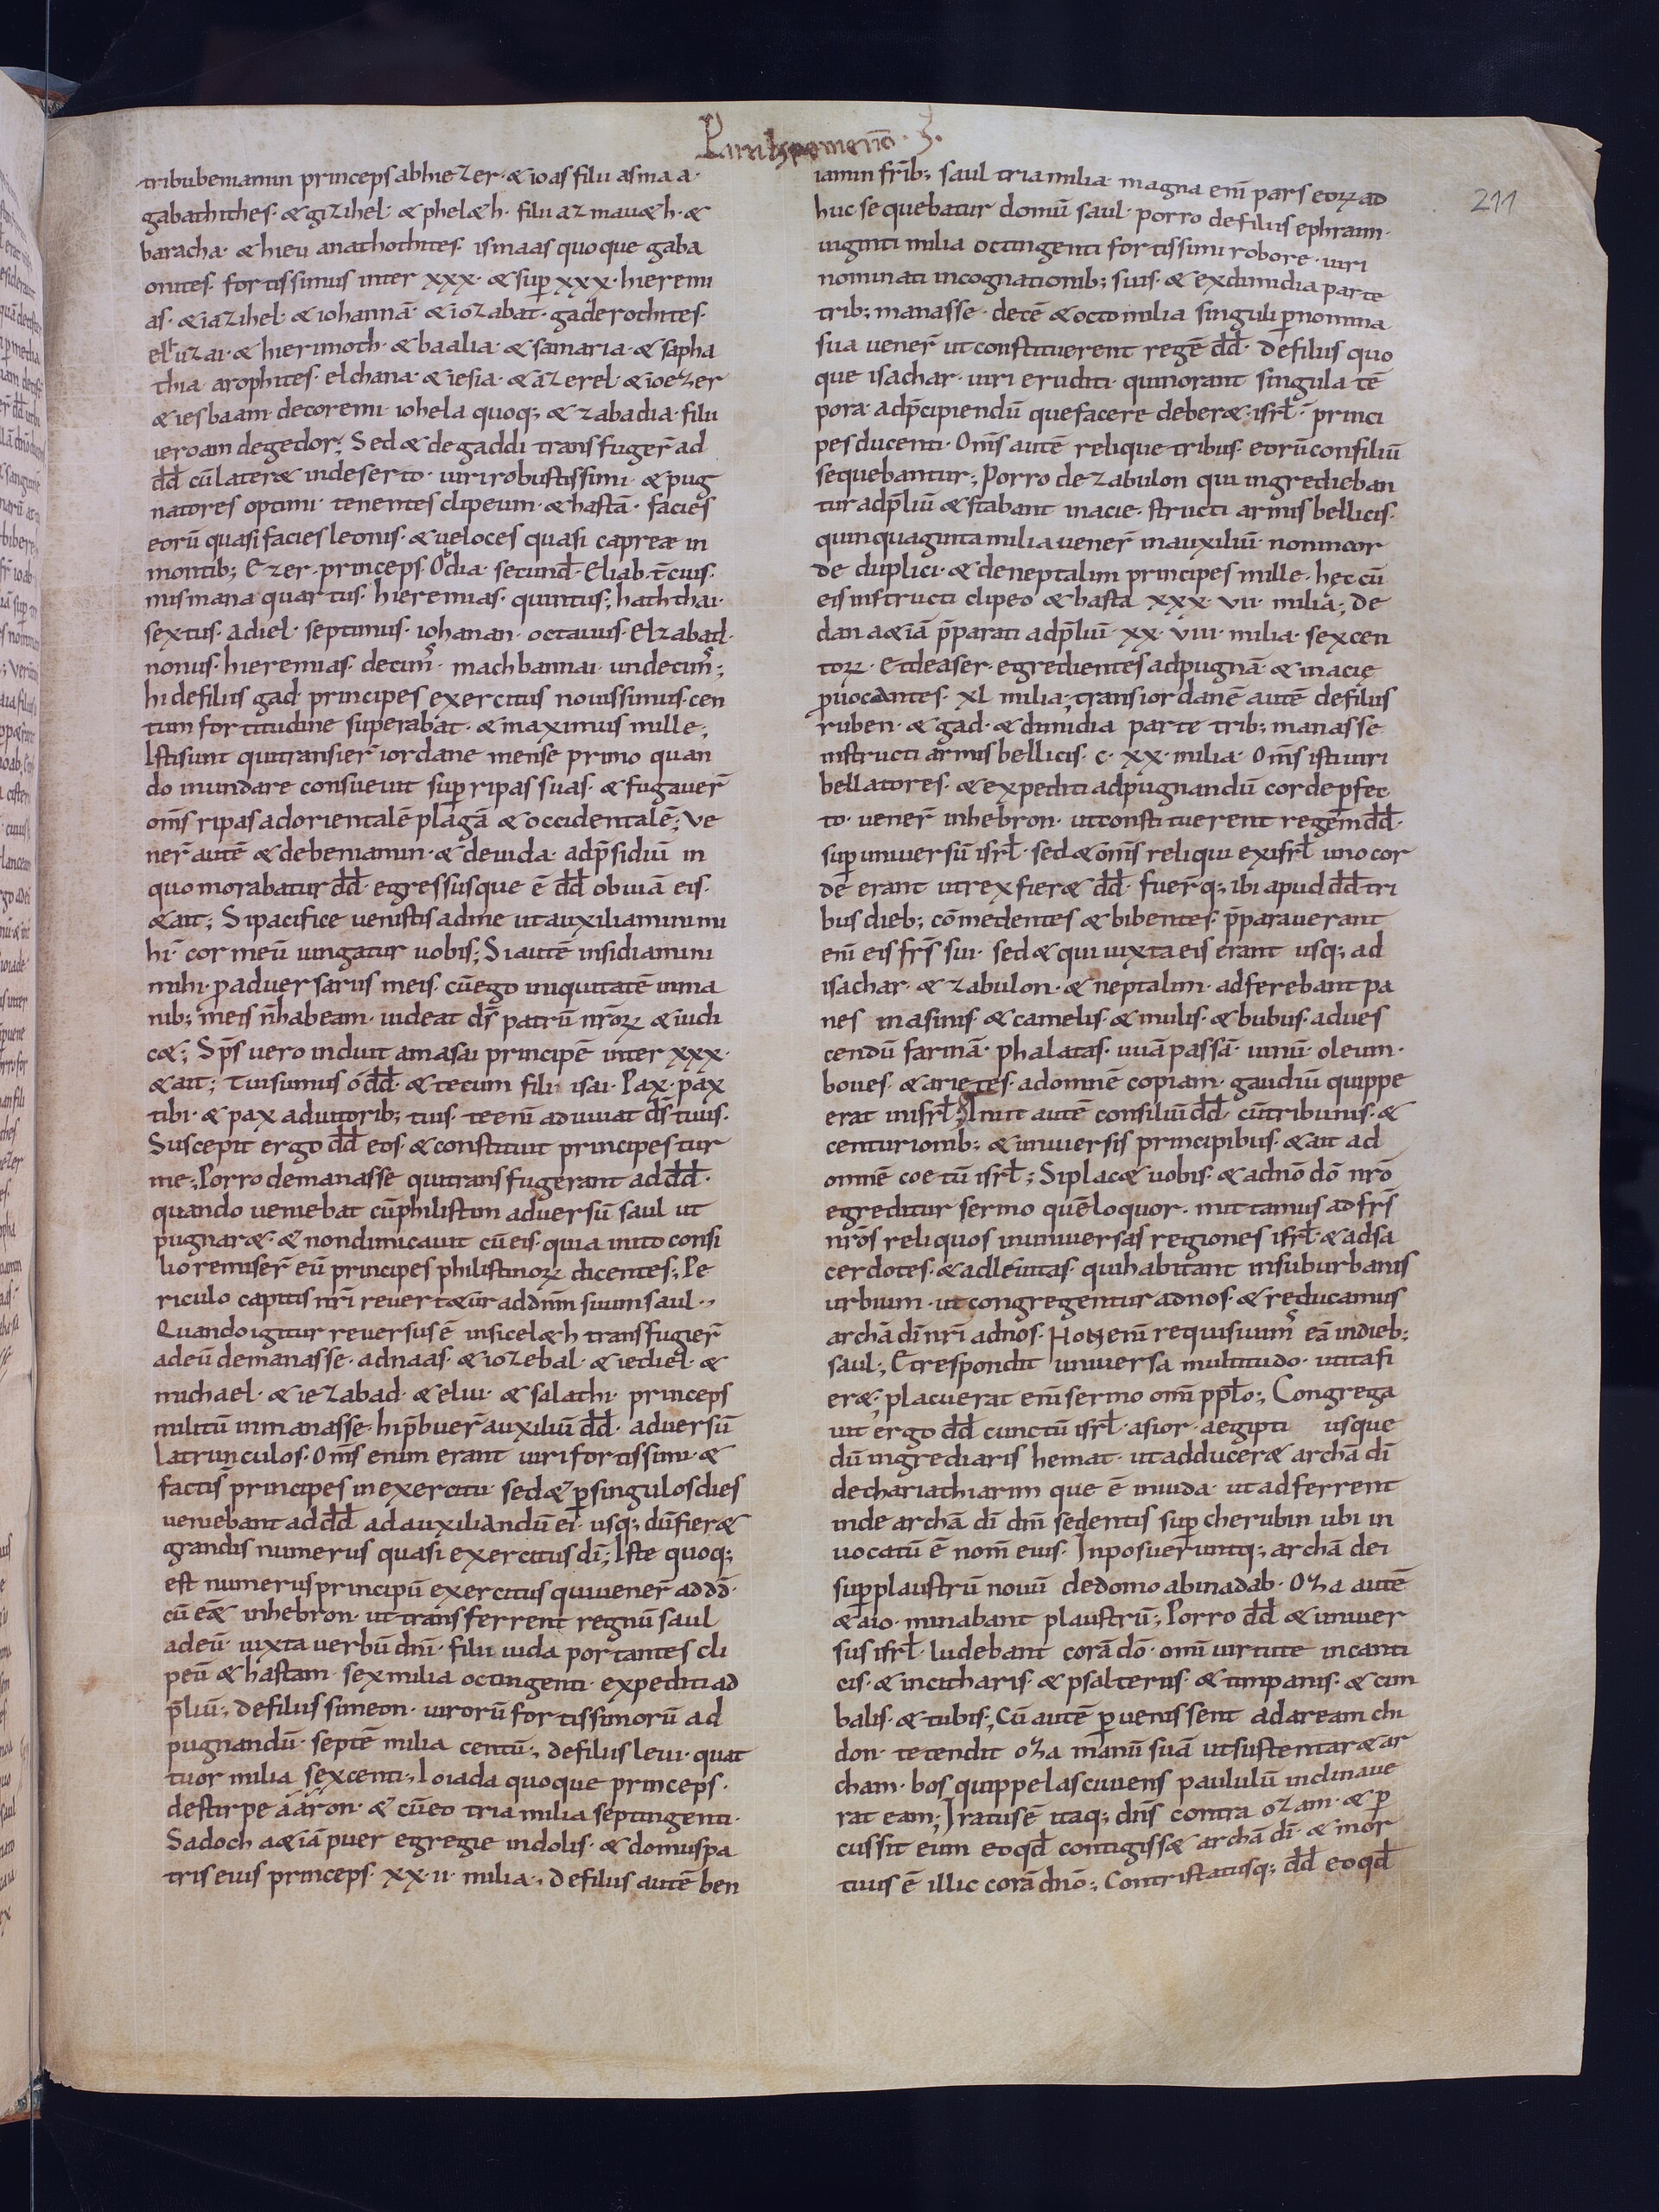 Paralypomenon · I ·
211
tribubeniamin princeps abhiezer · & ioas filii asmaa ·
gabathithes · & gizihel · & phel&h · filii azmau&h · &
baracha · & hieu anathothites · ismaas quoque gaba
onites · fortissimus inter xxx · & sup̄ xxx · hieremi
as · & iazihel · & iohannā · & iozabat · gaderothites ·
eluzai · & hierimoth · & baalia · & samaria · & sapha
thia arophites · elchana · & iesia · & azerel · & ioezer
& iesbaam · decoremi · iohela quoq; & zabadia · filii
ieroam degedor; Sed & degaddi transfuger̄ ad
dđ cū later& indeserto · uiri robustissimi · & pug
natores optimi · tenentes clipeum · & hastā · facies
eorū quasi facies leonis · & ueloces quasi capreæ in
montib; Ezer · princeps · Odia · secund̄ · Eliab · t̄cius ·
mismana quartus · hieremias · quintus; haththai ·
sextus · adiel · septimus · iohanan · octauus · Elzabad ·
nonus · hieremias · decim᾽ · machbannai · undecim᾽;
hi defiliis gad · principes exercitus nouissimus · cen
tum fortitudine superabat · & maximus mille;
Isti sunt qui transier̄ iordane mense primo quan
do inundare consueuit sup̄ ripas suas · & fugauer̄
om̄s ripas adorientalē plagā & occidentalē; Ve
ner̄ autē & debeniamin · & deiuda · adp̄sidiū in
quo morabatur dđ · egressusque ē dđ obuiā eis ·
& ait; Si pacifice uenistis adme ut auxiliamini mi
hi · cor meū iungatur uobis; Si autē insidiamini
mihi · p̄ aduersariis meis · cū ego iniquitatē inma
nib; meis n̄ habeam · uideat d̄s patrū nr̄oꝝ & iudi
c&; Sp̄s uero induit amasai principē inter xxx ·
& ait; Tui sumus ó dđ · & tecum filii isai · Pax · pax
tibi · & pax adiutorib; tuis · te eni adiuuat d̄s tuus ·
Suscepit ergo dđ eos · & constituit principes tur
me; Porro demanasse qui transfugerant ad dđ ·
quando ueniebat cū philistim aduersū saul ut
pugnar& · & non dimicauit cū eis · quia inito consi
lio remiser̄ eū principes philistinoꝝ dicentes; Pe
riculo capitis nr̄i reuert&ur ad dn̄m suum saul ·
Quando igitur reuersus ē insicel&h transfugier̄
adeū demanasse · adnaas · & iozebal · & iediel · &
michael · & iezabad · & eliu · & salathi · princeps
militū inmanasse · hi p̄buer̄ auxiliū dđ · aduersū
latrunculos · Om̄s enim erant uiri fortissimi · &
facti s̄ principes inexercitu · sed & p̄ singulos dies
ueniebant ad dđ ad auxiliandū ei · usq; dū fier&
grandis numerus quasi exercitus dī; Iste quoq;
est numerus principū exercitus qui uener̄ ad dđ ·
cū e&̄ inhebron · ut transferrent regnū saul
adeū · iuxta uerbū dn̄i · filii iuda portantes cli
peū & hastam · sex milia octingenti · expediti ad
p̄liū; defiliis simeon · uirorū fortissimorū ad
pugnandū · septē milia centū; defiliis leui · quat
tuor milia sexcenti; Ioiada quoque princeps ·
destirpe aaron · & cū eo tria milia septingenti ·
Sadoch a&iā puer egregie indolis · & domus pa
tris eius princeps · xx · ii · milia; defiliis autē ben
iamin fr̄ib; saul tria milia · magna eni pars eoꝝ ad
huc sequebatur domū saul · porro defiliis ephraim ·
uiginti milia octingenti fortissimi robore · uiri
nominati incognationib; suis · & exdimidia parte
trib; manasse · decē & octo milia singuli p̄ nomina
sua uener̄ ut constituerent regē dđ · defiliis quo
que isachar · uiri eruditi · qui norant singula tē
pora · adp̄cipiendū que facere deber& · isrł · princi
pes ducenti · Om̄s autē relique tribus · eorū consiliū
sequebantur; Porro de zabulon qui ingredieban
tur adp̄liū & stabant inacie · structi armis bellicis ·
quinquaginta milia uener̄ inauxiliū · non incor
de duplici · & deneptalim principes mille · hęc cū
eis instructi clipeo & hasta xxx · vii · milia; de
dan a&iā p̄parati adp̄liū · xx · viii · milia · sexcen
toꝝ · Et deaser · egredientes adpugnā · & inacię
p̄uocantes · xl milia; trans iordanē autē defiliis
ruben · & gad · & dimidia parte trib; manasse
instructi armis bellicis · c · xx · milia · Om̄s isti uiri
bellatores · & expediti adpugnandū corde p̄fec
to · uener̄ inhebron · ut constituerent regēm dđ ·
sup̄ uniuersū isrł · sed & om̄s reliqui exisrł uno cor
de erant ut rex fier& dđ · fuer̄q; ibi apud dđ tri
bus dieb; cōmedentes & bibentes · p̄parauerant
eni eis fr̄s sui · sed & qui iuxta eis erant usq; ad
isachar · & zabulon · & neptalim · adferebant pa
nes inasinis · & camelis · & mulis · & bubus · adues
cendū farinā · phalatas · uuā passā · uinū · oleum ·
boues · & arietes · adomnē copiam · gaudiū quippe
erat inisrł; Iniit autē consiliū dđ · cū tribunis · &
centurionib; & uniuersis principibus · & ait ad
omnē coetū isrł; Si plac& uobis · & adnō dō nr̄o
egreditur sermo quē loquor · mittamus ad fr̄s
nr̄os reliquos inuniuersas regiones isrł · & adsa
cerdotes · & adleuitas · qui habitant insuburbanis
urbium · ut congregentur adnos · & reducamus
archā dī nr̄i adnos · Non eni requisiuim᾽ eā indieb;
saul; Et respondit uniuersa multitudo · ut ita fi
er& · placuerat eni sermo omi ppło; Congrega
uit ergo dđ cunctū isrł · asior · aegipti usque
dū ingrediaris hemat · ut adducer& archā dī
dechariathiarim que ē iniuda · ut adferrent
inde archā dī dn̄i sedentis sup̄ cherubin ubi in
uocatū ē nom̄ eius · Inposueruntq; archā dei
sup̄ plaustrū nouū dedomo abinadab · Oza autē
& aio · minabant plaustrū; Porro dđ & uniuer
sus isrł · ludebant corā dō · omi uirtute incanti
cis · & incitharis · & psalteriis · & timpanis · & cim
balis · & tubis; Cū autē p̄uenissent adaream chi
don · tetendit oza manū suā ut sustentar& ar
cham · bos quippe lasciuiens paululū inclinaue
rat eam; Iratus ē itaq; dn̄s contra ozam · & p̄
cussit eum eo qđ contigiss& archā dī · & mor
tuus ē illic corā dn̄o; Contristatusq; dđ eo qđ